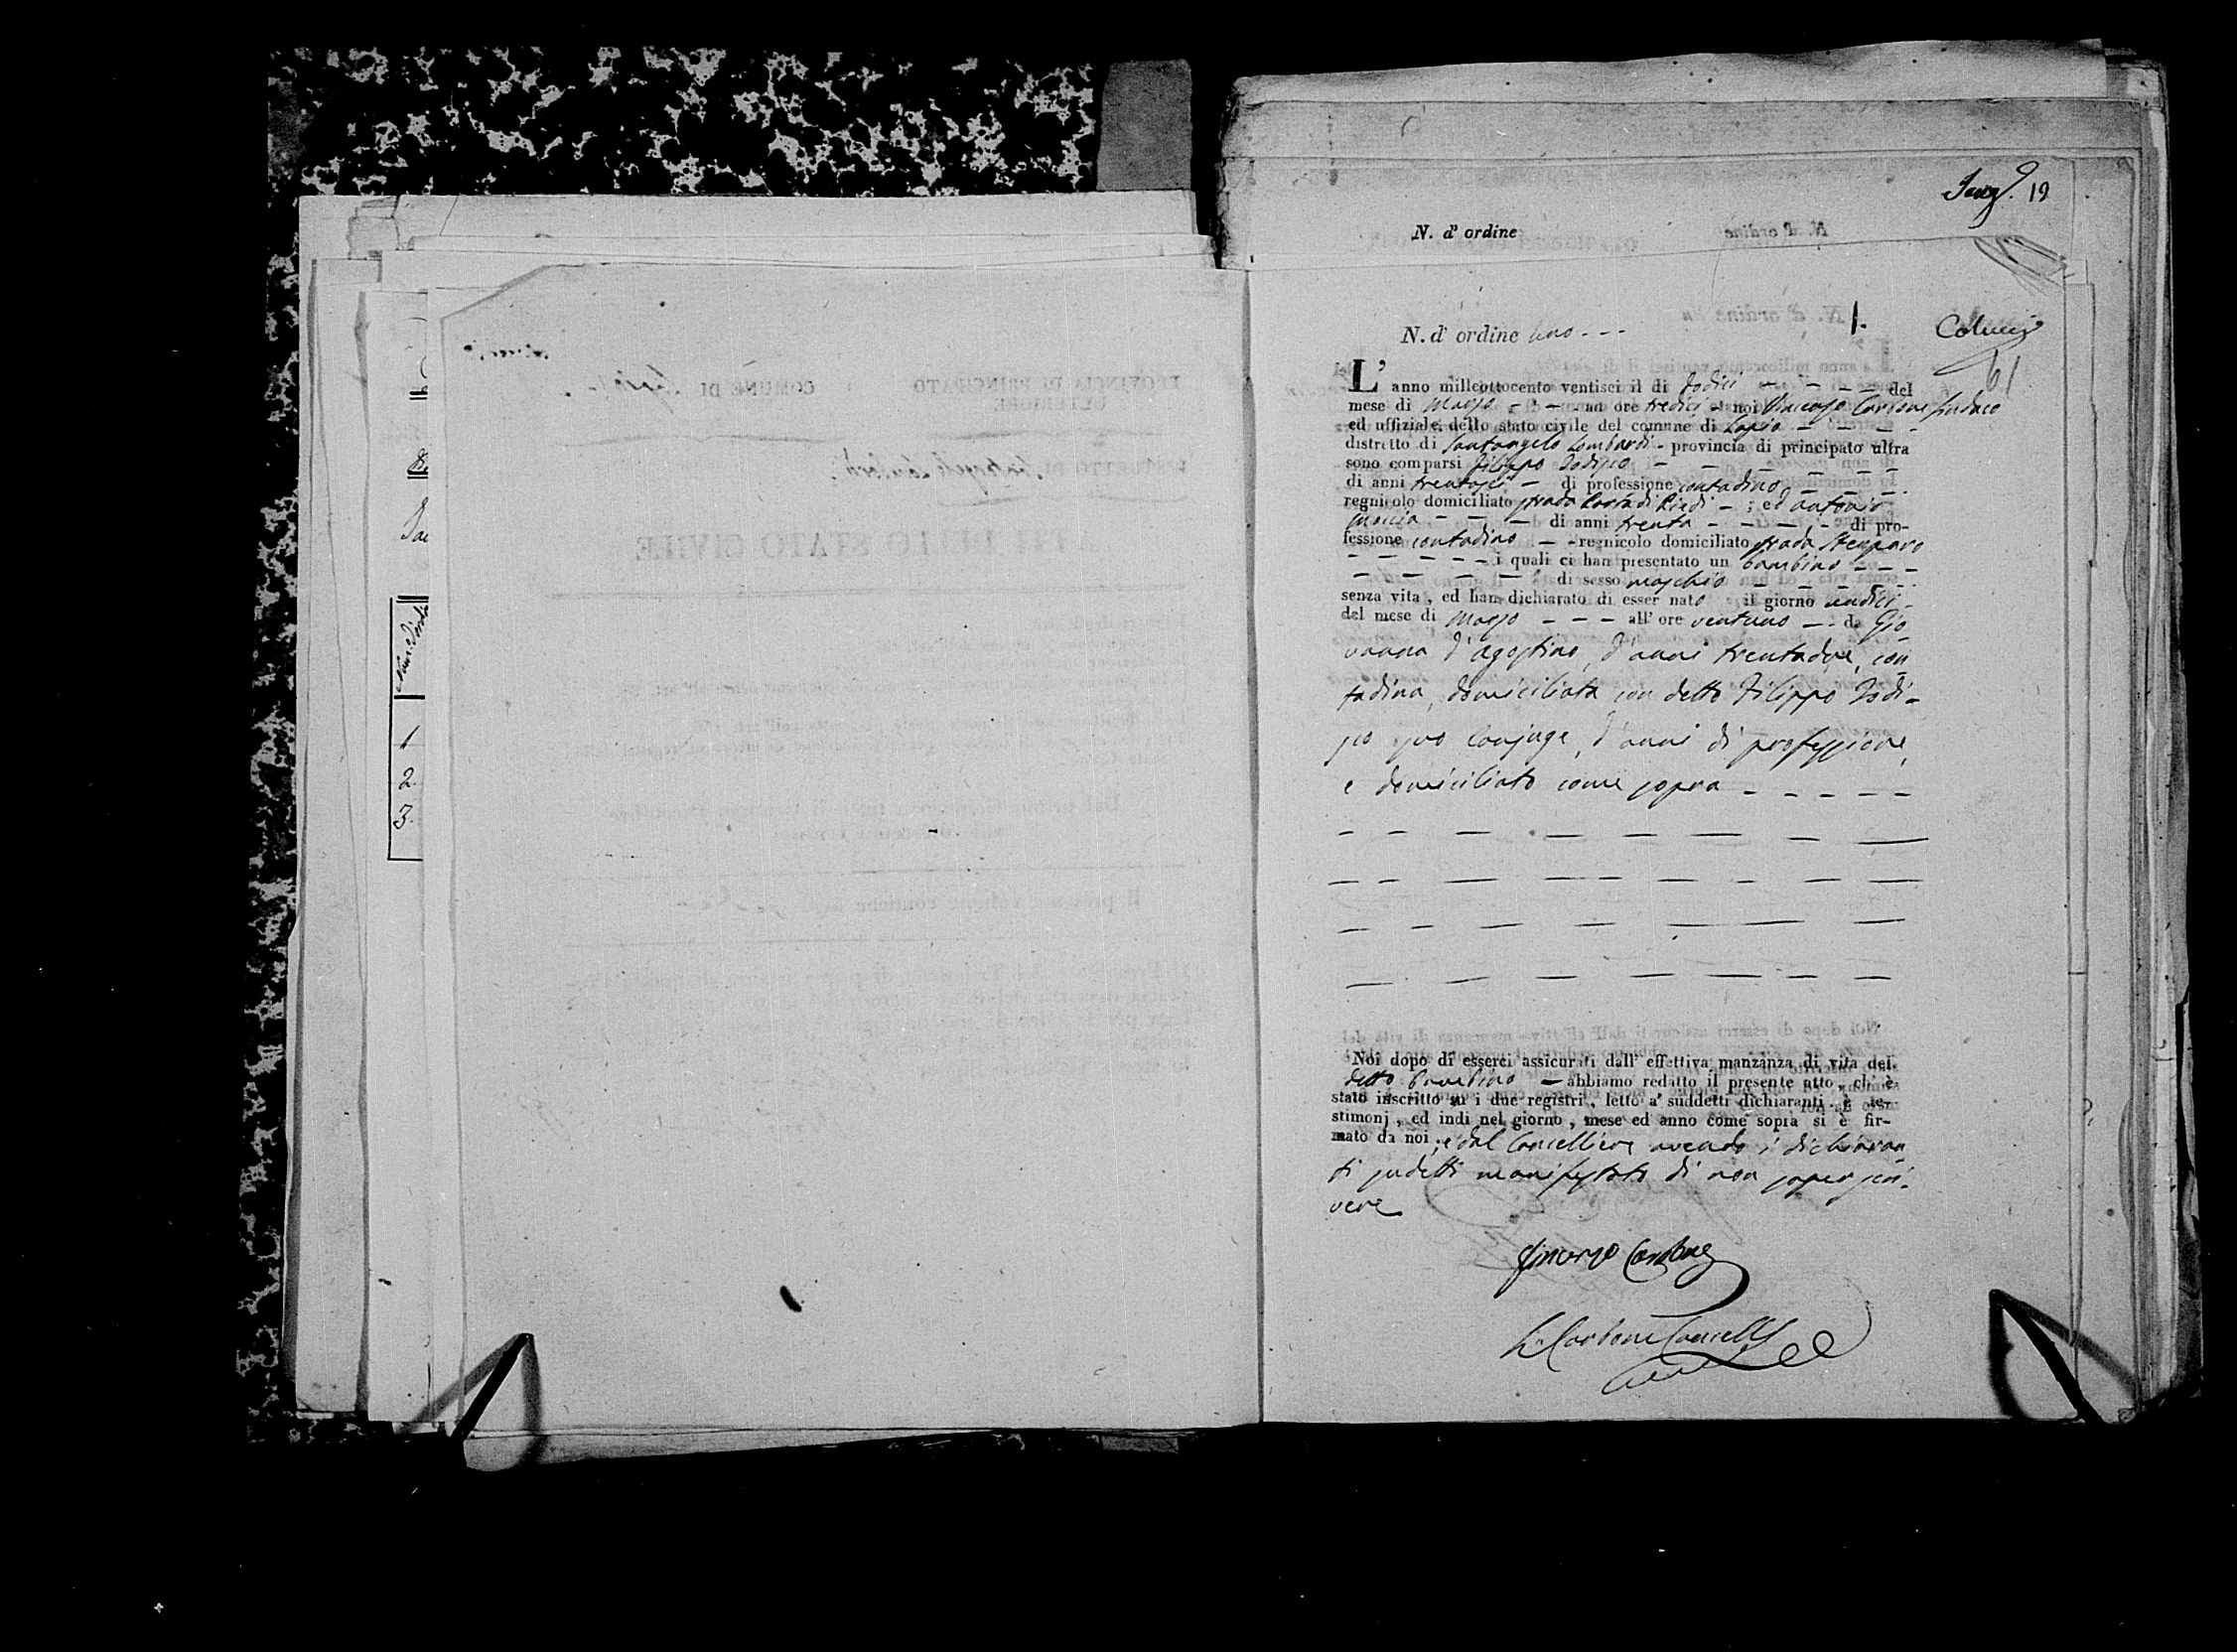 1
2.
3.
N. d' ordine
19
N. d' ordine uno ---
1.
Colucci
61
L' anno milleottocento ventisei il di dodici - - - - del
mese di Marzo - - - - ad ore tredici - noi Vincenzo Carbone Sindaco
ed uffiziale dello stato civile del comune di Lapio - - - -
distretto di Santangelo Lombardi - provincia di principato ultra
sono comparsi Filippo Iodiso - - - - -
di anni trentasei - di professione contadino - - - .
regnicolo domiciliato strada Costa di Piedi - ; ed antonio
- - - di anni trenta - - - - - di pro-
fessione contadino - - regnicolo domiciliato strada
- - - - - i quali ci han presentato un bambino - - -
- - - - - di sesso maschio - - - - -
senza vita, ed han dichiarato di esser nato il giorno undici -
del mese di Marzo - - - all' ore ventuno - - da Gio
vanna d'agostino, d'anni trentadue, con
tadina, domiciliata con detto Filippo Iodi-
so suo conjuge, d'anni di professione,
e domiciliato come sopra - - - - -
Noi dopo di esserci assicurati dall' effettiva manzanza di vita del
detto bambino - abbiamo redatto il presente atto, ch' è
stato inscritto su i due registri, letto a' suddetti dichiaranti e te-
stimonj, ed indi nel giorno, mese ed anno come sopra si è fir-
mato da noi, e dal Cancelliere avendo i dichiaran
ti sudetti manifestato di non saper scri-
vere
Vincenzo Carbone
Carbone Cancell